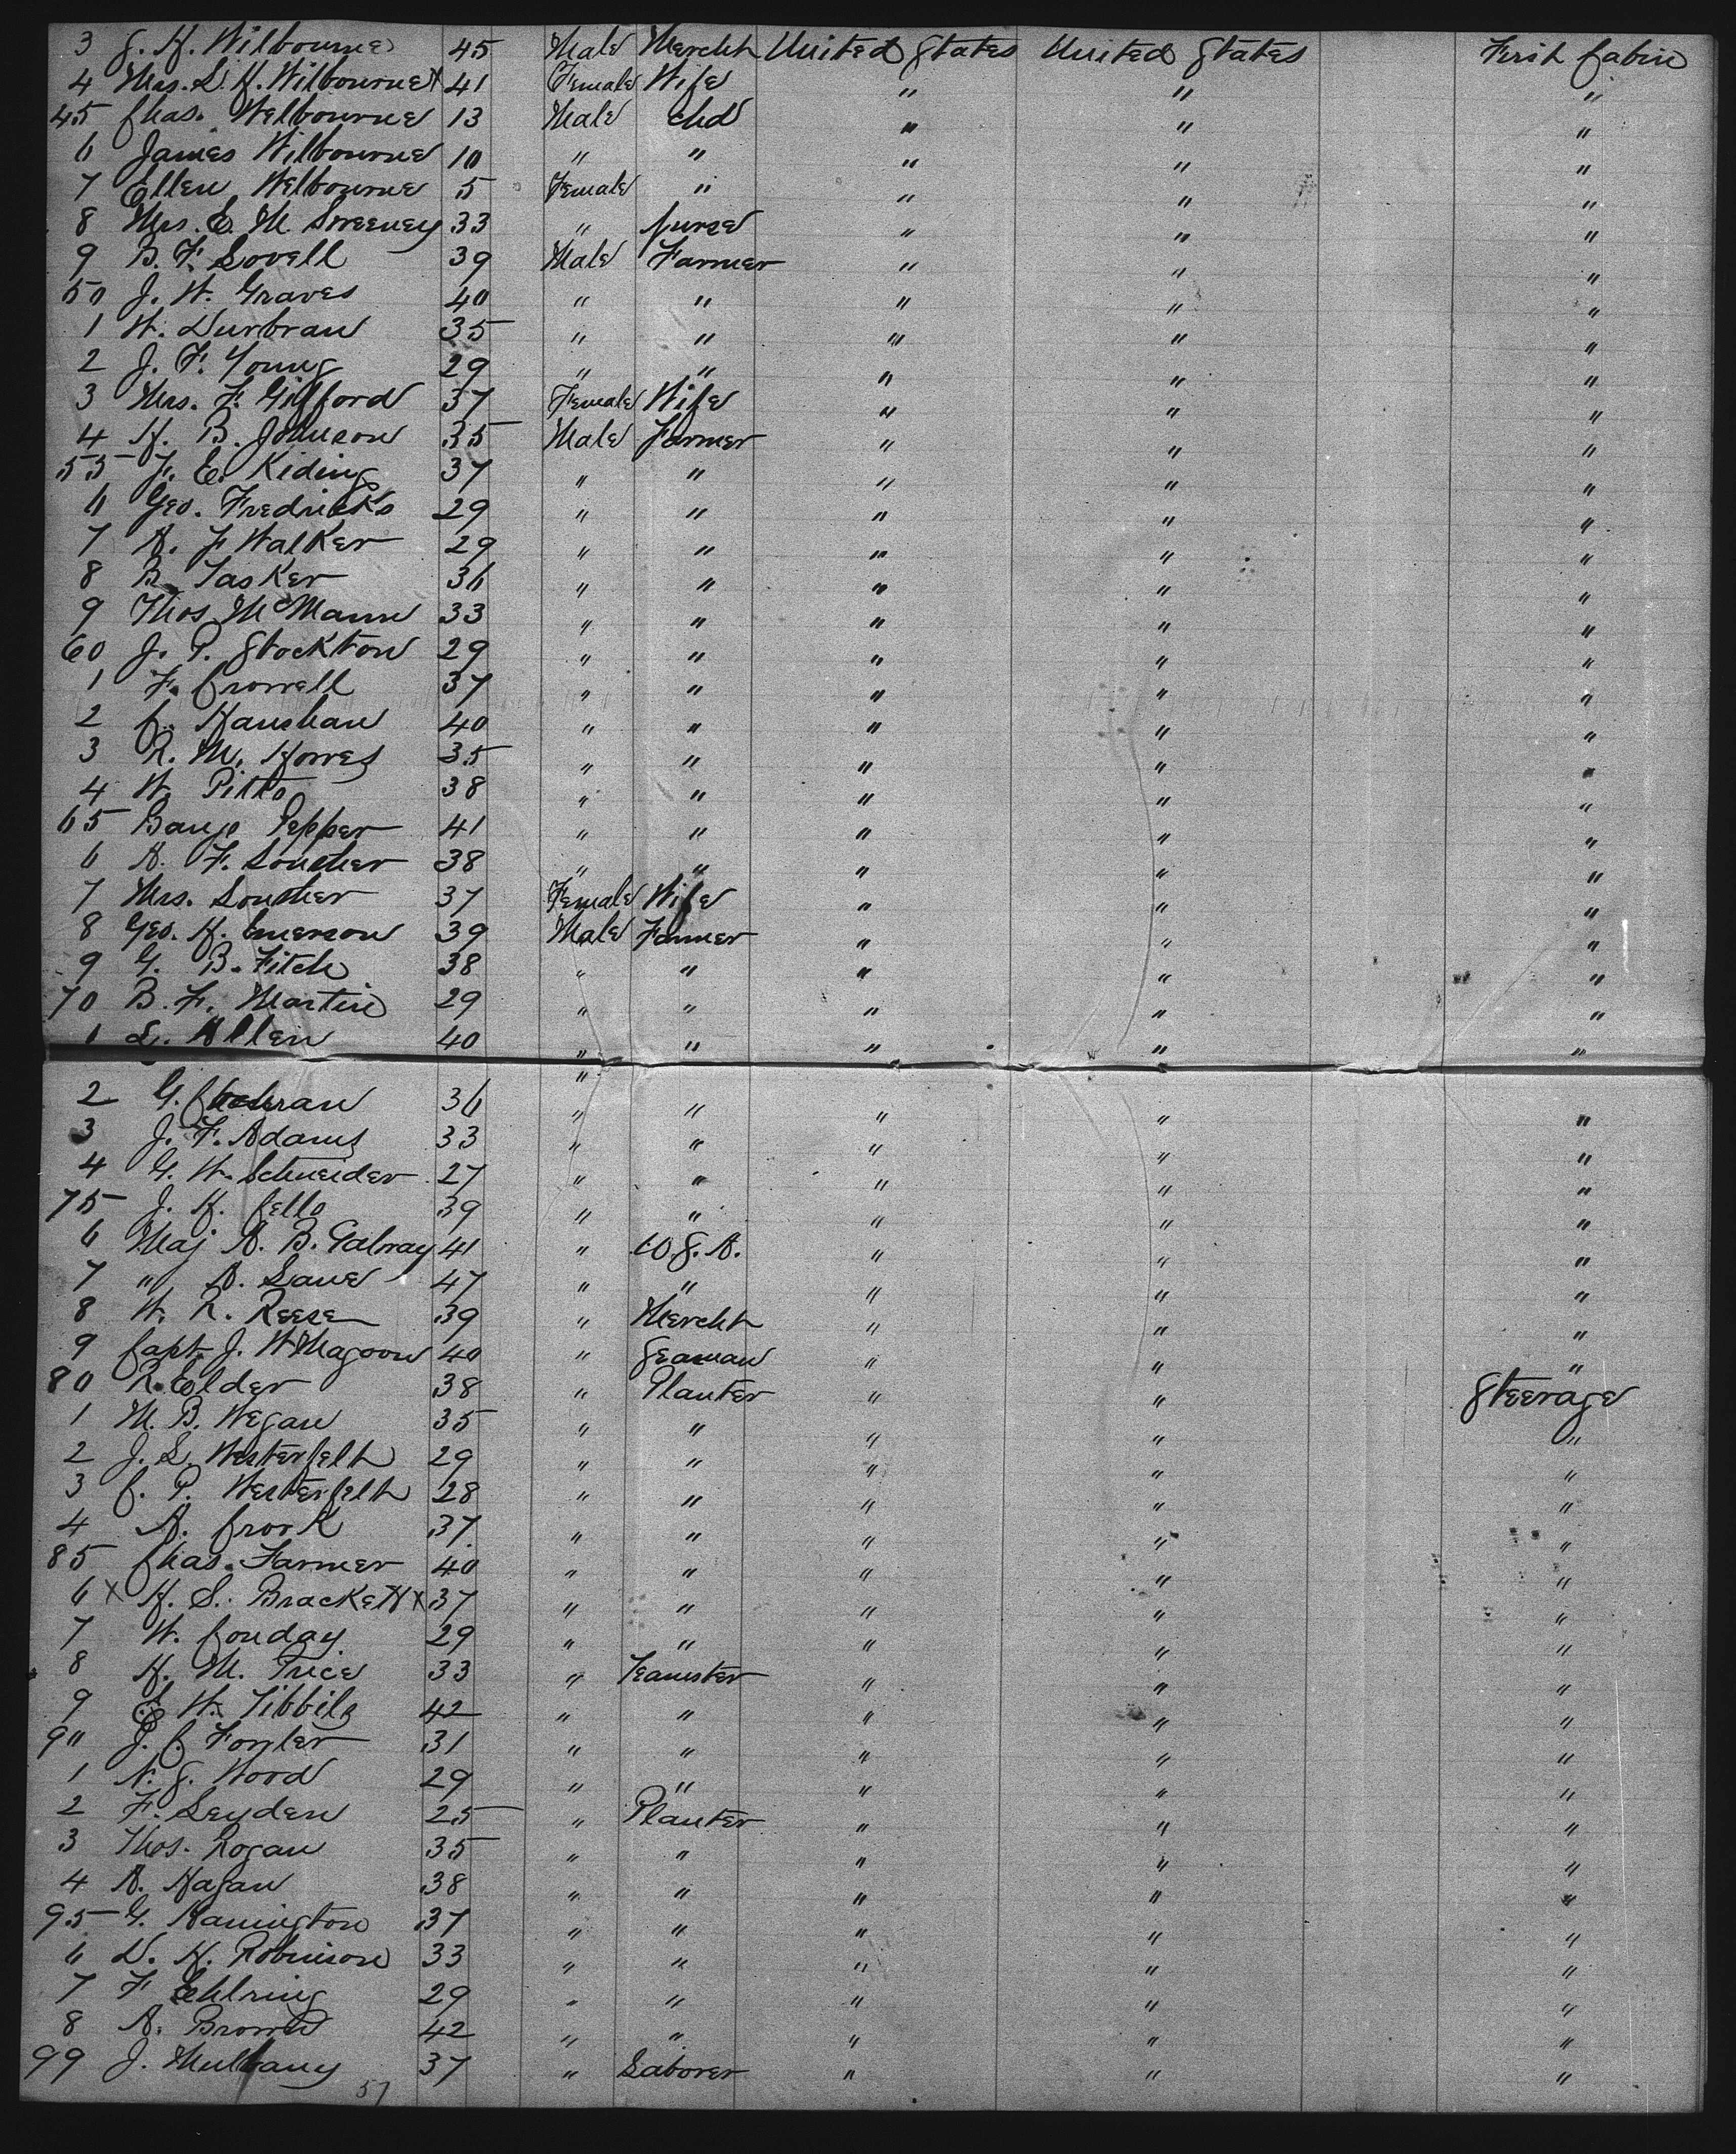 3 J. H. Wilbourne 45 Male Mercht United States United States First Cabin
4 Mrs. S. H. Wilbourne x 41 Female Wife " " "
45 Chas. Welbourne 13 Male Chd " " "
6 James Wilbourne 10 " " " " "
7 Ellen Welbourne 5 Female " " " "
8 Mrs. E. M. Sweeney 33 " nurse " " "
9 B. F. Lovell 39 Male Farmer " " "
50 J. W. Graves 40 " " " " "
1 W. Durbran 35 " " " " "
2 J. F. Young 29 " " " " "
3 Mrs. F. Gilfford 37 Female Wife " " "
4 H. B. Johnson 35 Male Farmer " " "
55 F. E. Kiding 37 " " " " "
6 Geo. Fredricks 29 " " " " "
7 A. F Walker 29 " " " " "
8 B. Tasker 36 " " " " "
9 Thos McMann 33 " " " " "
60 J. P. Stockton 29 " " " " "
1 F. Crowell 37 " " " " "
2 C. Hanshaw 40 " " " " "
3 R. M. Howes 35 " " " " "
4 W. Pitts 38 " " " " "
65 Pepper 41 " " " " "
6 A. F. Loucher 38 " " " " "
7 Mrs. Loucher 37 Female Wife " " "
8 Geo. H. Emerson 39 Male Farmer " " "
9 G. B. Fitch 38 " " " " "
70 B. F. Martin 29 " " " " "
1 L. Allen 40 " " " " "
"
2 G. Cochran 36 " " " " "
3 J. F. Adams 33 " " " " "
4 G. W. Schneider 27 " " " " "
75 J. H. Cells 39 " " " " "
6 Maj A. B. Galway 41 " U.S.A. " " "
7 " A. Lane 47 " " " " "
8 W. R. Reese 39 " Mercht " " "
9 Capt. J. W Magoon 40 " Seaman " " "
80 R. Elder 38 " Planter " " Steerage
1 M. B. Hegan 35 " " " " "
2 J. L. Westerfelt 29 " " " " "
3 C. P. Westerfelt 28 " " " " "
4 A. Crork 37 " " " " "
85 Chas. Farmer 40 " " " " "
6 x H. S. Brackett x 37 " " " " "
7 W. Conday 29 " " " " "
8 H. M. Price 33 " Teamster " " "
9 E W. Tibbils 42 " " " " "
90 J. C. Fowler 31 " " " " "
1 N. S. Wood 29 " " " " "
2 F. Leyden 25 " Planter " " "
3 Thos. Rogan 35 " " " " "
4 A. Hagan 38 " " " " "
95 G. Hanington 37 " " " " "
6 D. H. Robinson 33 " " " " "
7 F Ehlring 29 " " " " "
8 A. Brown 42 " " " " "
99 J. Mulvany 37 " Laborer " " "
57